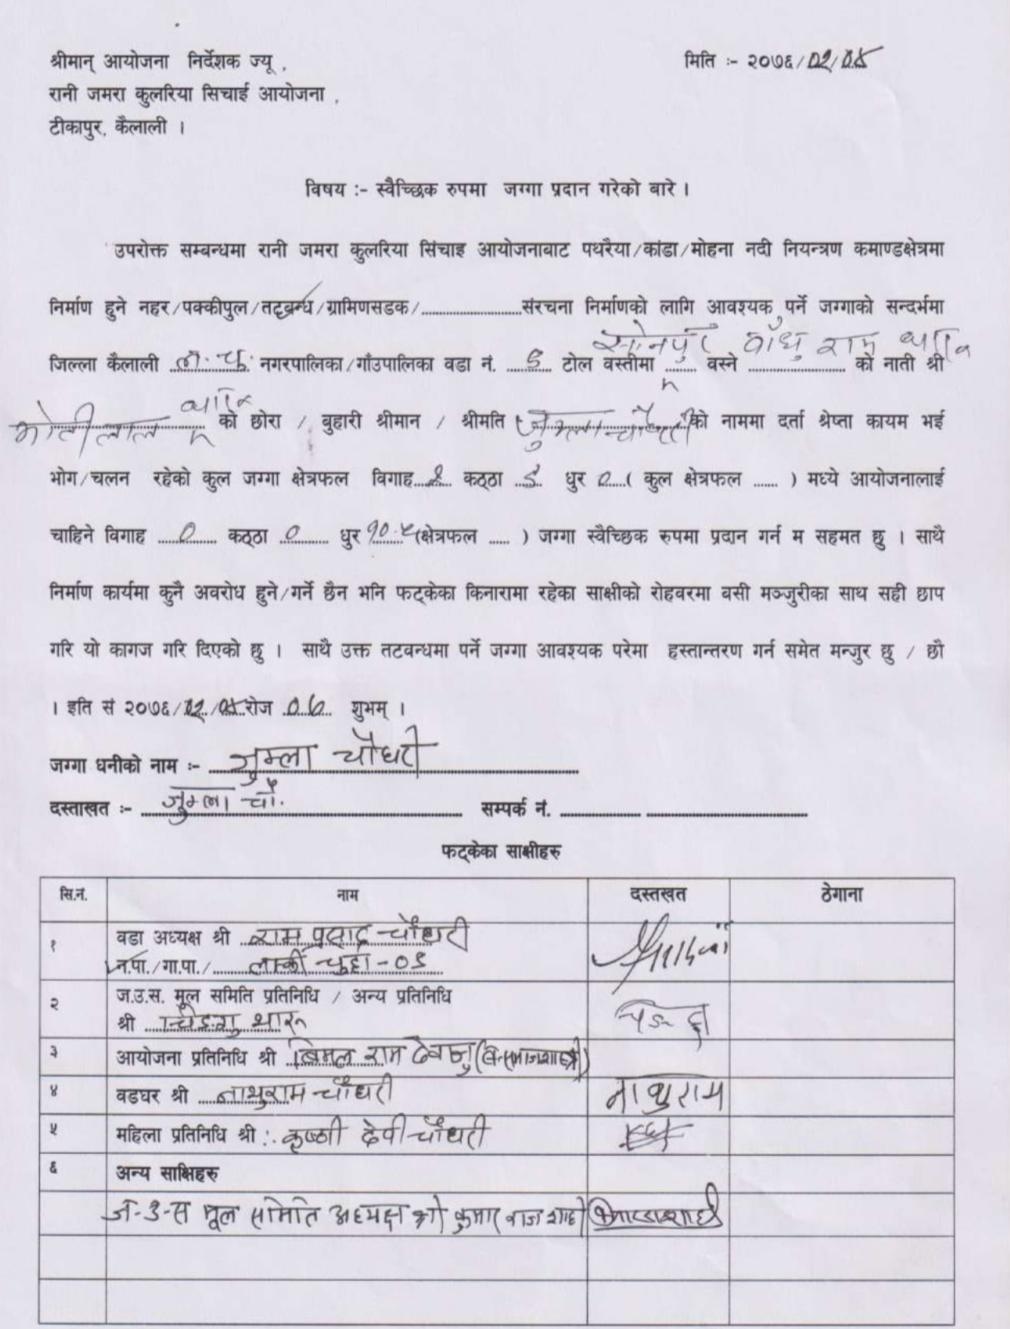 श्रीमान् आयोजना निर्देशक ज्यू ,
मिति :- २०७६/०२/०५
रानी जमरा कुलरिया सिचाई आयोजना ,
टीकापुर, कैलाली ।
विषय :- स्वैच्छिक रुपमा जग्गा प्रदान गरेको बारे ।
उपरोक्त सम्बन्धमा रानी जमरा कुलरिया सिंचाइ आयोजनाबाट पथरैया/कांडा/मोहना नदी नियन्त्रण कमाण्डक्षेत्रमा
निर्माण हुने नहर/पक्कीपुल/तटबन्ध/ग्रामिणसडक/....................संरचना निर्माणको लागि आवश्यक पर्ने जग्गाको सन्दर्भमा
जिल्ला कैलाली ल. चु. नगरपालिका/गाँउपालिका वडा नं. टोल वस्तीमा सोनपुर वस्ने राम को नाती श्री
मोतीलाल को छोरा / बुहारी श्रीमान / श्रीमति जुम्ला चौधरी को नाममा दर्ता श्रेष्ता कायम भई
भोग/चलन रहेको कुल जग्गा क्षेत्रफल विगाह कठ्ठा धुर ०( कुल क्षेत्रफल ...... ) मध्ये आयोजनालाई
चाहिने विगाह ० कठ्ठा ० धुर १०.५(क्षेत्रफल ..... ) जग्गा स्वैच्छिक रुपमा प्रदान गर्न म सहमत छु । साथै
निर्माण कार्यमा कुनै अवरोध हुने/गर्ने छैन भनि फट्केका किनारामा रहेका साक्षीको रोहवरमा बसी मञ्जुरीका साथ सही छाप
गरि यो कागज गरि दिएको छु । साथै उक्त तटवन्धमा पर्ने जग्गा आवश्यक परेमा हस्तान्तरण गर्न समेत मन्जुर छु / छौ
। इति सं २०७६/०२/०५ रोज शुभम् ।
जग्गा धनीको नाम :- जुम्ला चौधरी
दस्ताखत :- जुम्ला चौ. सम्पर्क नं. ....................
फट्केका साक्षीहरु
सि.नं. नाम दस्तखत ठेगाना
१ वडा अध्यक्ष श्री राम प्रसाद चौधरी
न.पा./गा.पा./ लम्की चुहा-
२ ज.उ.स. मूल समिति प्रतिनिधि / अन्य प्रतिनिधि
श्री थारु
३ आयोजना प्रतिनिधि श्री बिमल राम
४ वडघर श्री नाथुराम चौधरी नाथुराम
५ महिला प्रतिनिधि श्री : कृष्णी देवी चौधरी
६ अन्य साक्षिहरु
ज-उ-स मूल समिति अध्यक्ष श्री कुमार